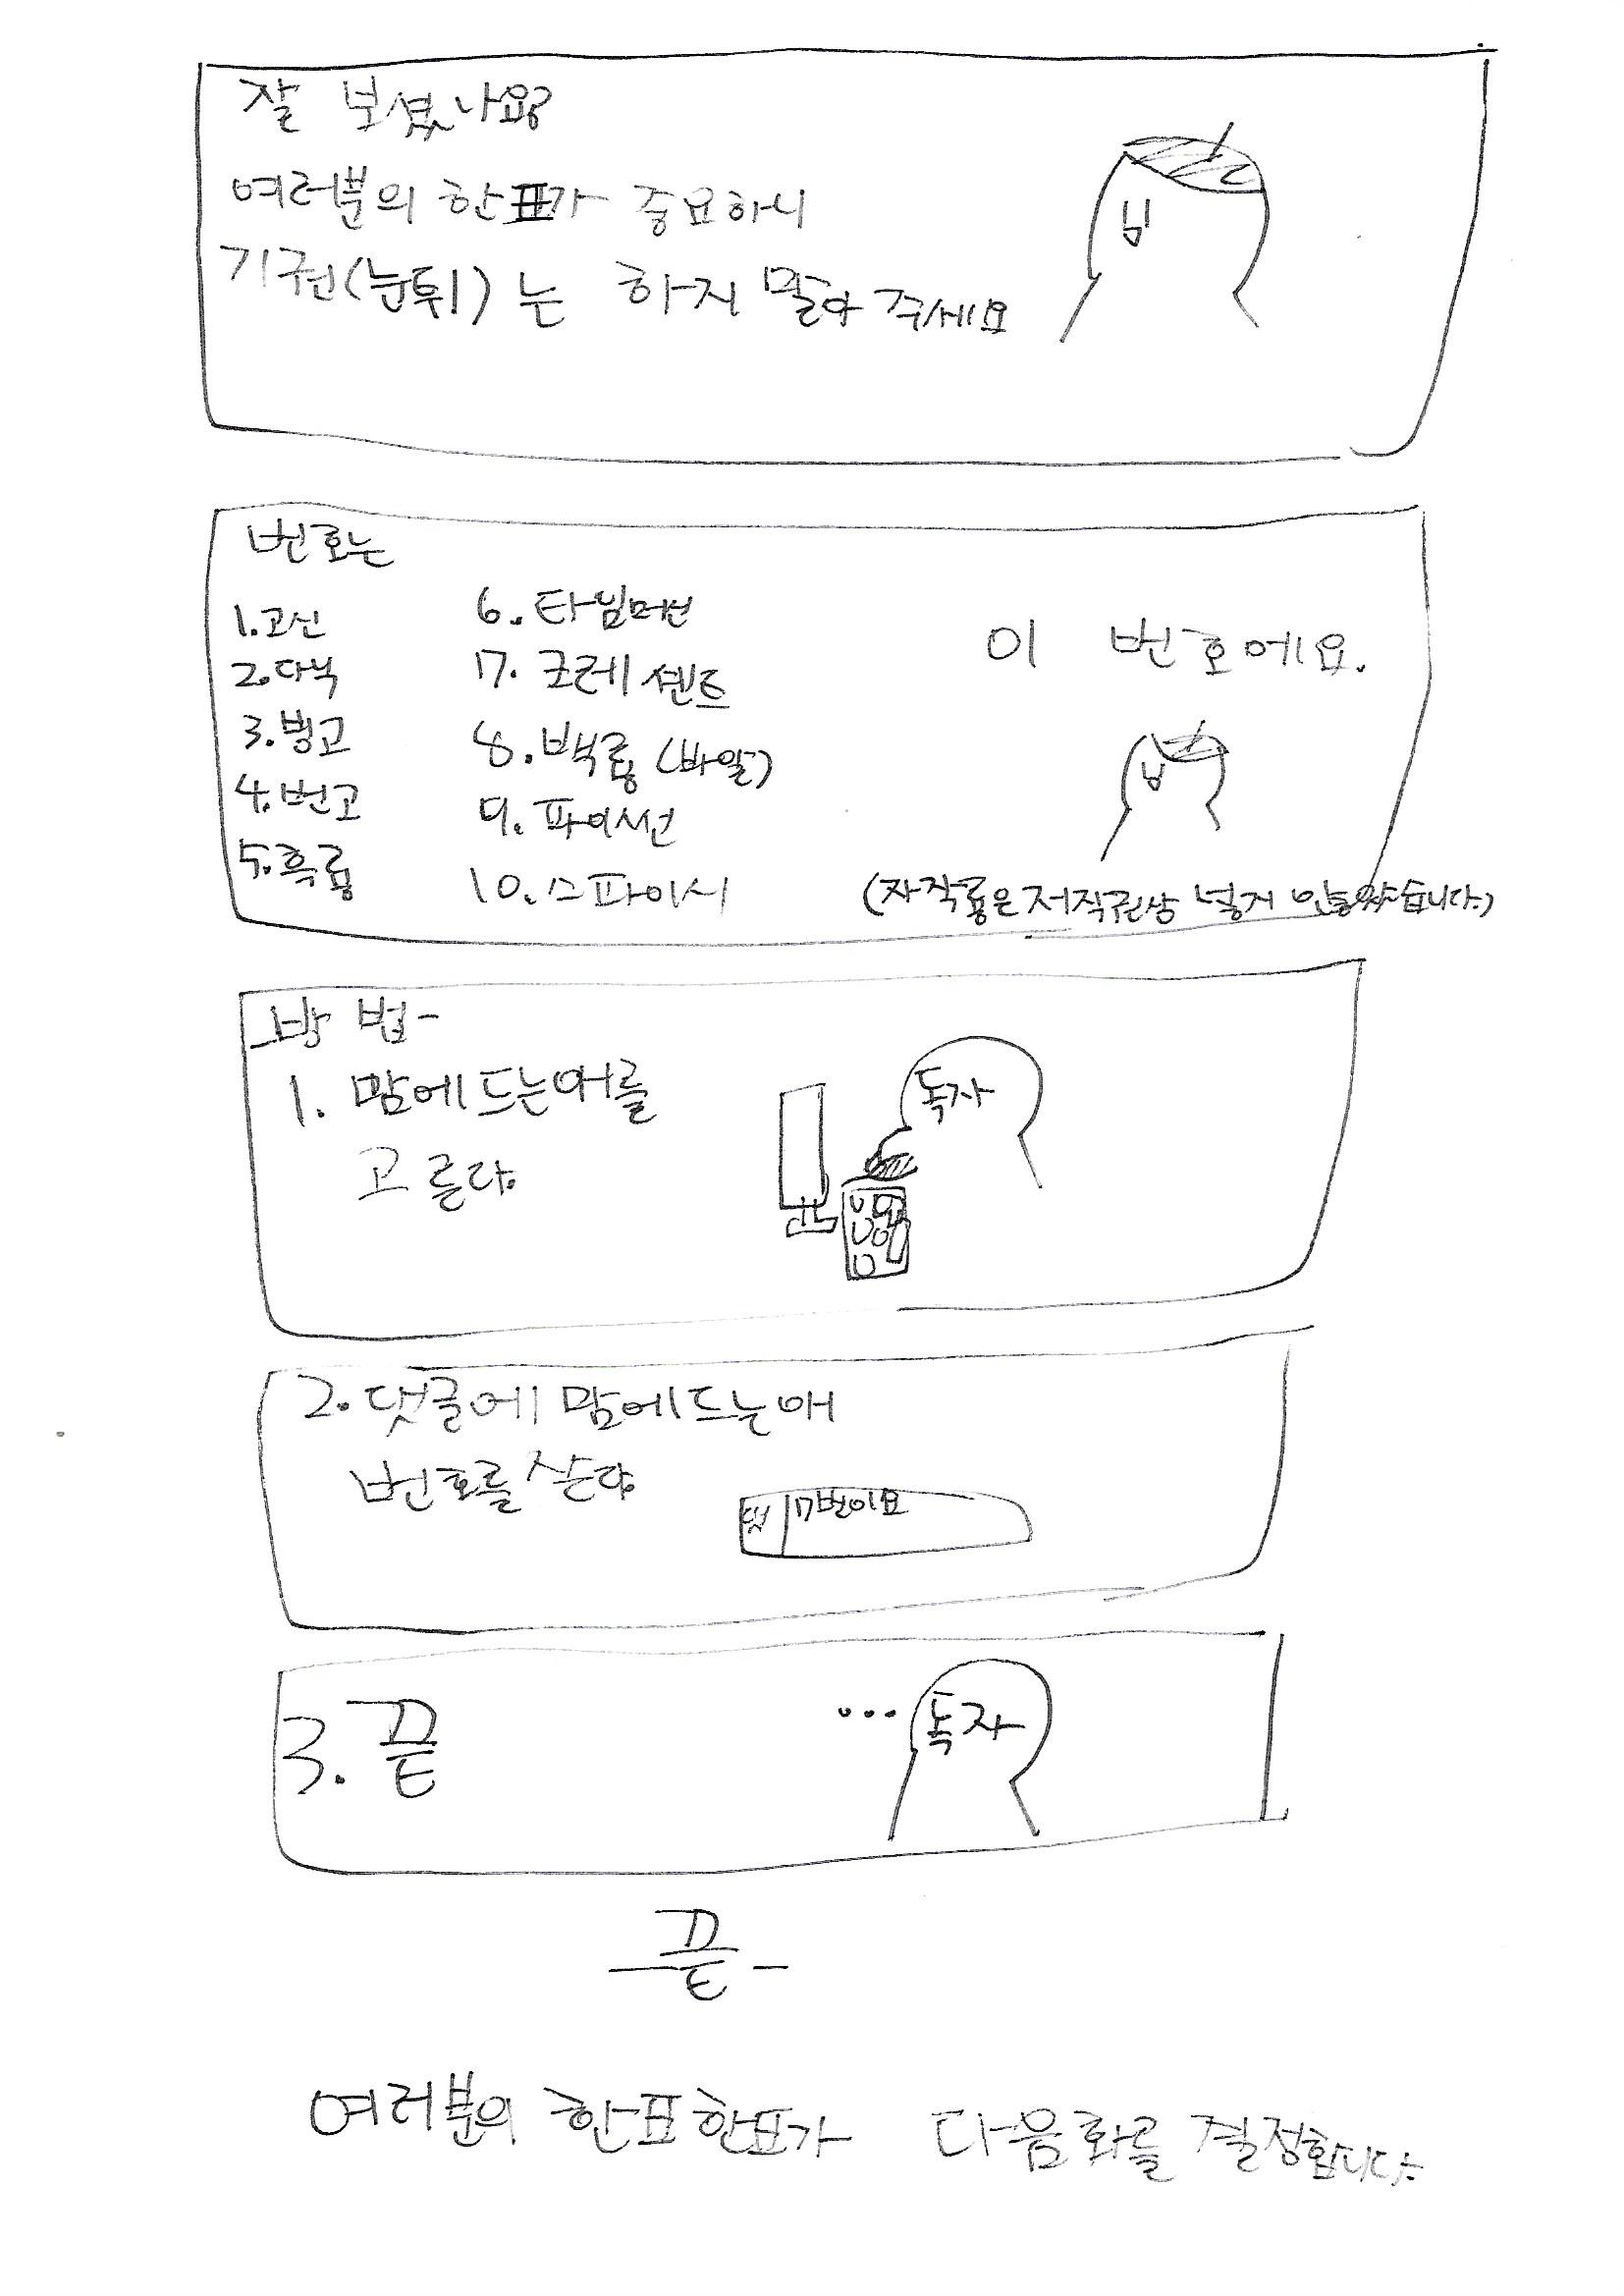 잘 보셨나요?
여러분의 한표가 중요하니
기권(눈튀)는 하지 말아 주세요
번호는
1.고신
2.다닉
3.빙고
4.번고
5.흑룡
6.타임머신
7.크레센트
8.백룡(바알)
9.파이선
10.스파이시
이 번호에요.
(자작룡은 저작권상 넣지 않았습니다.)
방법-
1. 맘에드는애를
고른다.
독자
2.댓글에 맘에드는애
번호를 쓴다.
댓 7번이요
3.끝
... 독자
-끝-
여러분의 한표한표가 다음화를 결정합니다.